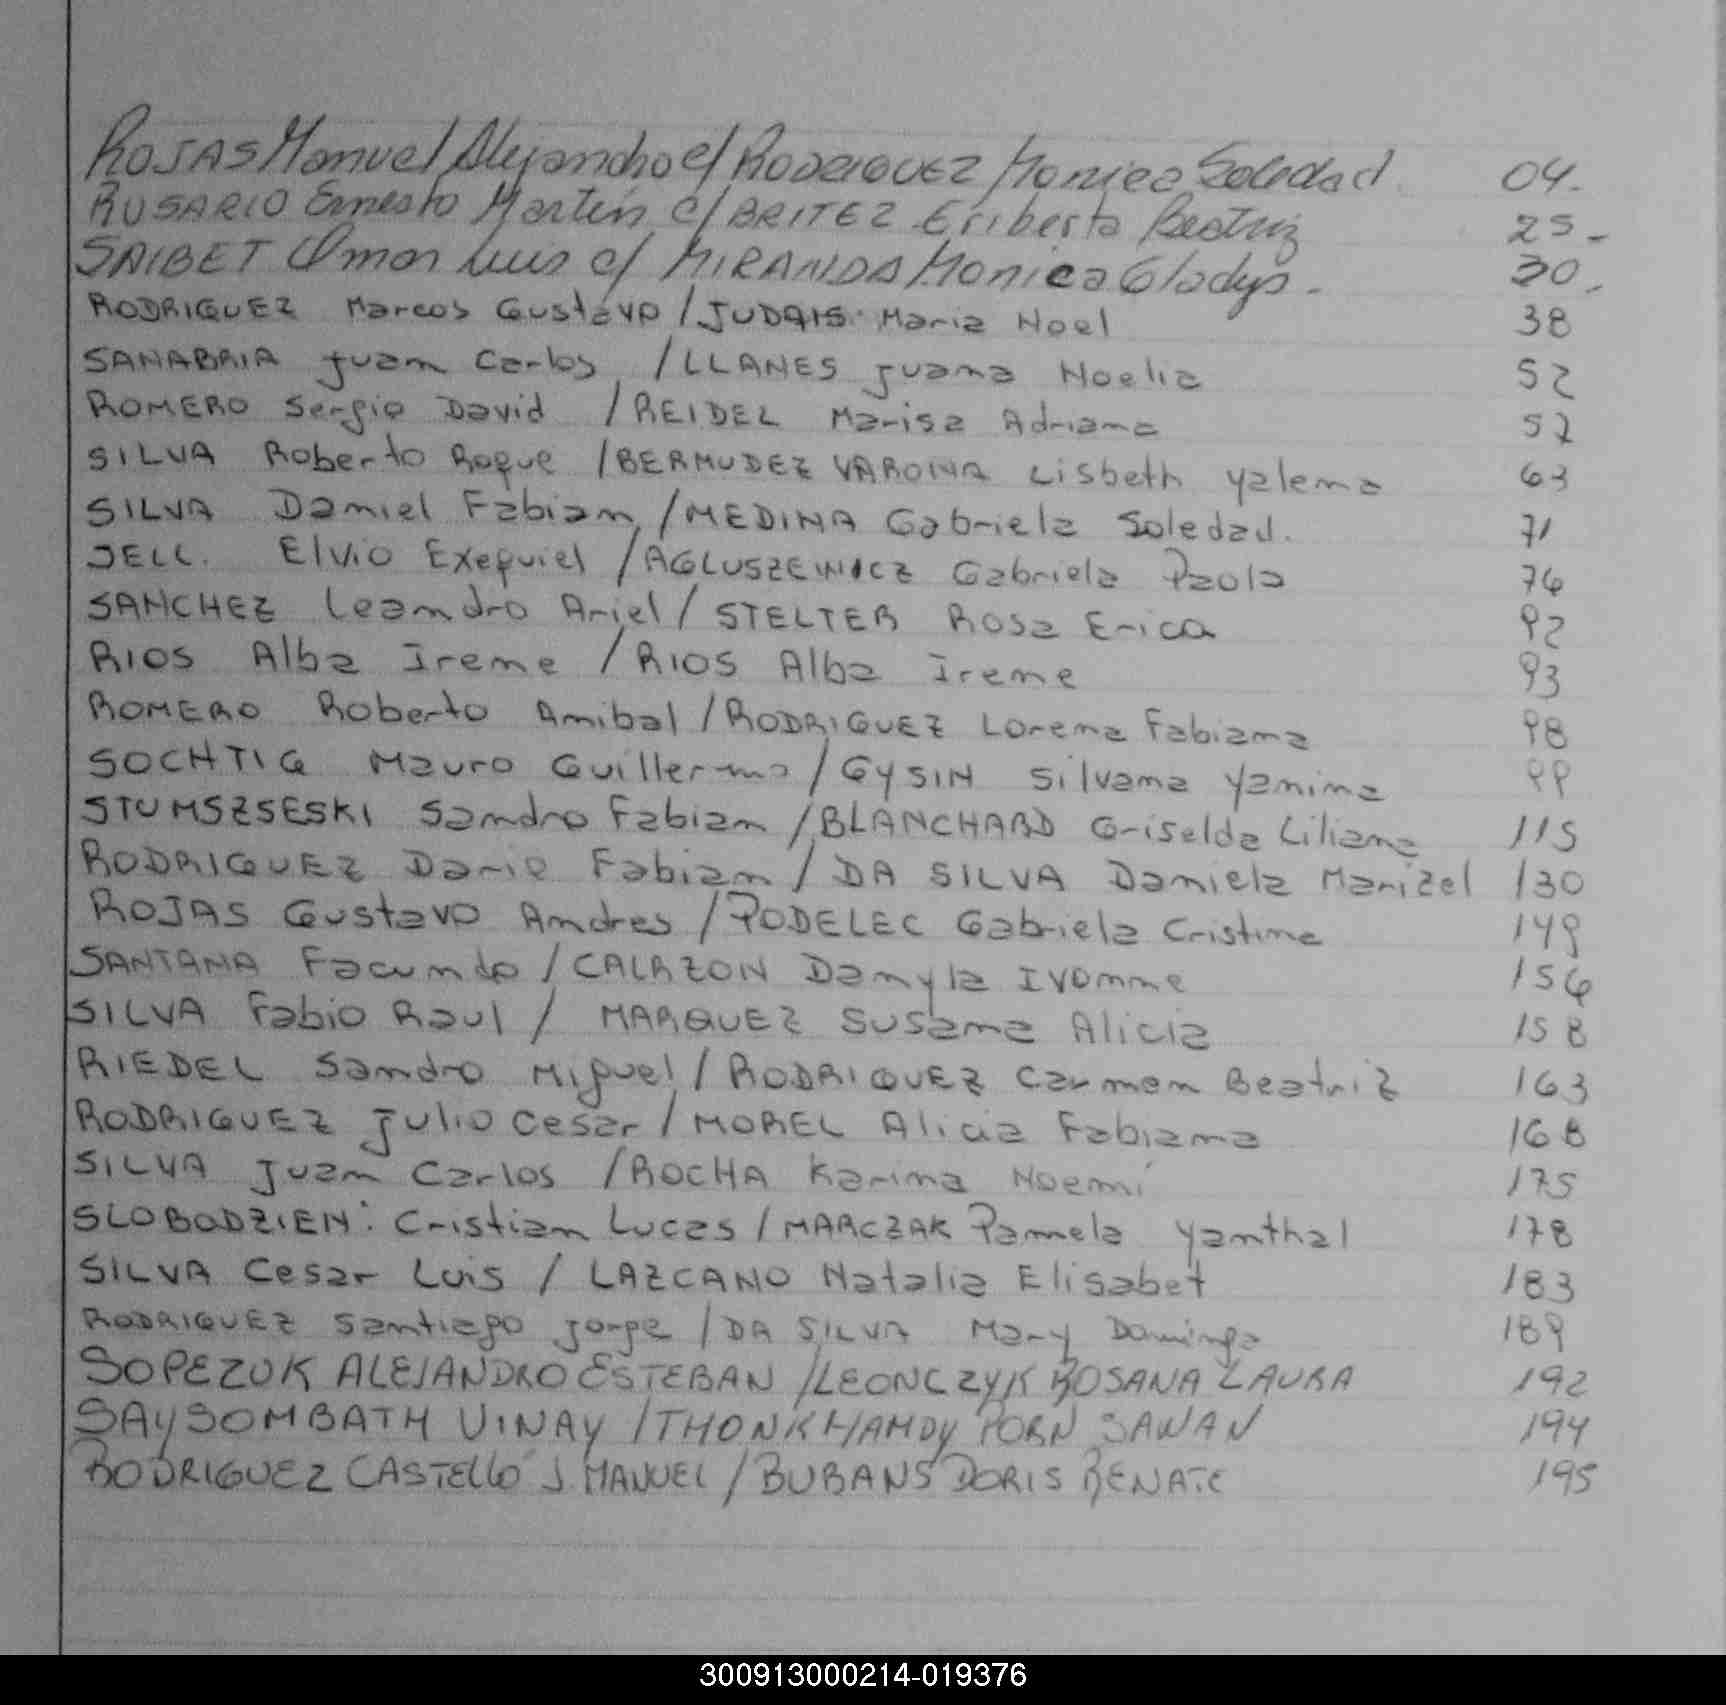 ROJAS Manuel Alejandro c/ RODRIGUEZ Monica Soledad. 04.
RUSARIO Ernesto Martin c/ BRITEZ Eriberta Beatriz 25-
SAIBET Omar Luis c/ MIRANDA Monica Gladys. 30.
RODRIGUEZ Marcos Gustavo / JUDAIS Maria Noel 38
SANABRIA Juan Carlos / LLANES Juana Noelia 52
ROMERO Sergio David / REIDEL Marisa Adriana 57
SILVA Roberto Roque / BERMUDEZ VARONA Lisbeth Yalema 63
SILVA Daniel Fabian / MEDINA Gabriela Soledad. 71
JELL. Elvio Exequiel / AGLUSZEWICZ Gabriela Paola 76
SANCHEZ Leandro Ariel / STELTER Rosa Erica 92
RIOS Alba Irene / RIOS Alba Irene 93
ROMERO Roberto Anibal / RODRIGUEZ Lorena Fabiana 98
SOCHTIG Mauro Guillermo / GYSIN Silvana Yanina 99
STUMSZSESKI Sandro Fabian / BLANCHARD Griselda Liliana 115
RODRIGUEZ Dario Fabian / DA SILVA Daniela Marizel 130
ROJAS Gustavo Andres / PODELEC Gabriela Cristina 149
SANTANA Facundo / CALAZON Danyla Ivonne 156
SILVA Fabio Raul / MARQUEZ Susana Alicia 158
RIEDEL Sandro Miguel / RODRIQUEZ Carmen Beatriz 163
RODRIGUEZ Julio Cesar / MOREL Alicia Fabiana 168
SILVA Juan Carlos / ROCHA Karina Noemí 175
SLOBODZIEN: Cristian Lucas / MARCZAK Pamela Yanthal 178
SILVA Cesar Luis / LAZCANO Natalia Elisabet 183
RODRIGUEZ Santiago Jorge / DA SILVA Mary Dominga 189
SOPEZUK ALEJANDRO ESTEBAN / LEONCZYK ROSANA LAURA 192
SAYSOMBATH VINAY / THONKHAMDY PORN SAWAN 194
RODRIGUEZ CASTELLO J. MANUEL / BUBANS DORIS RENATE 195
300913000214-019376